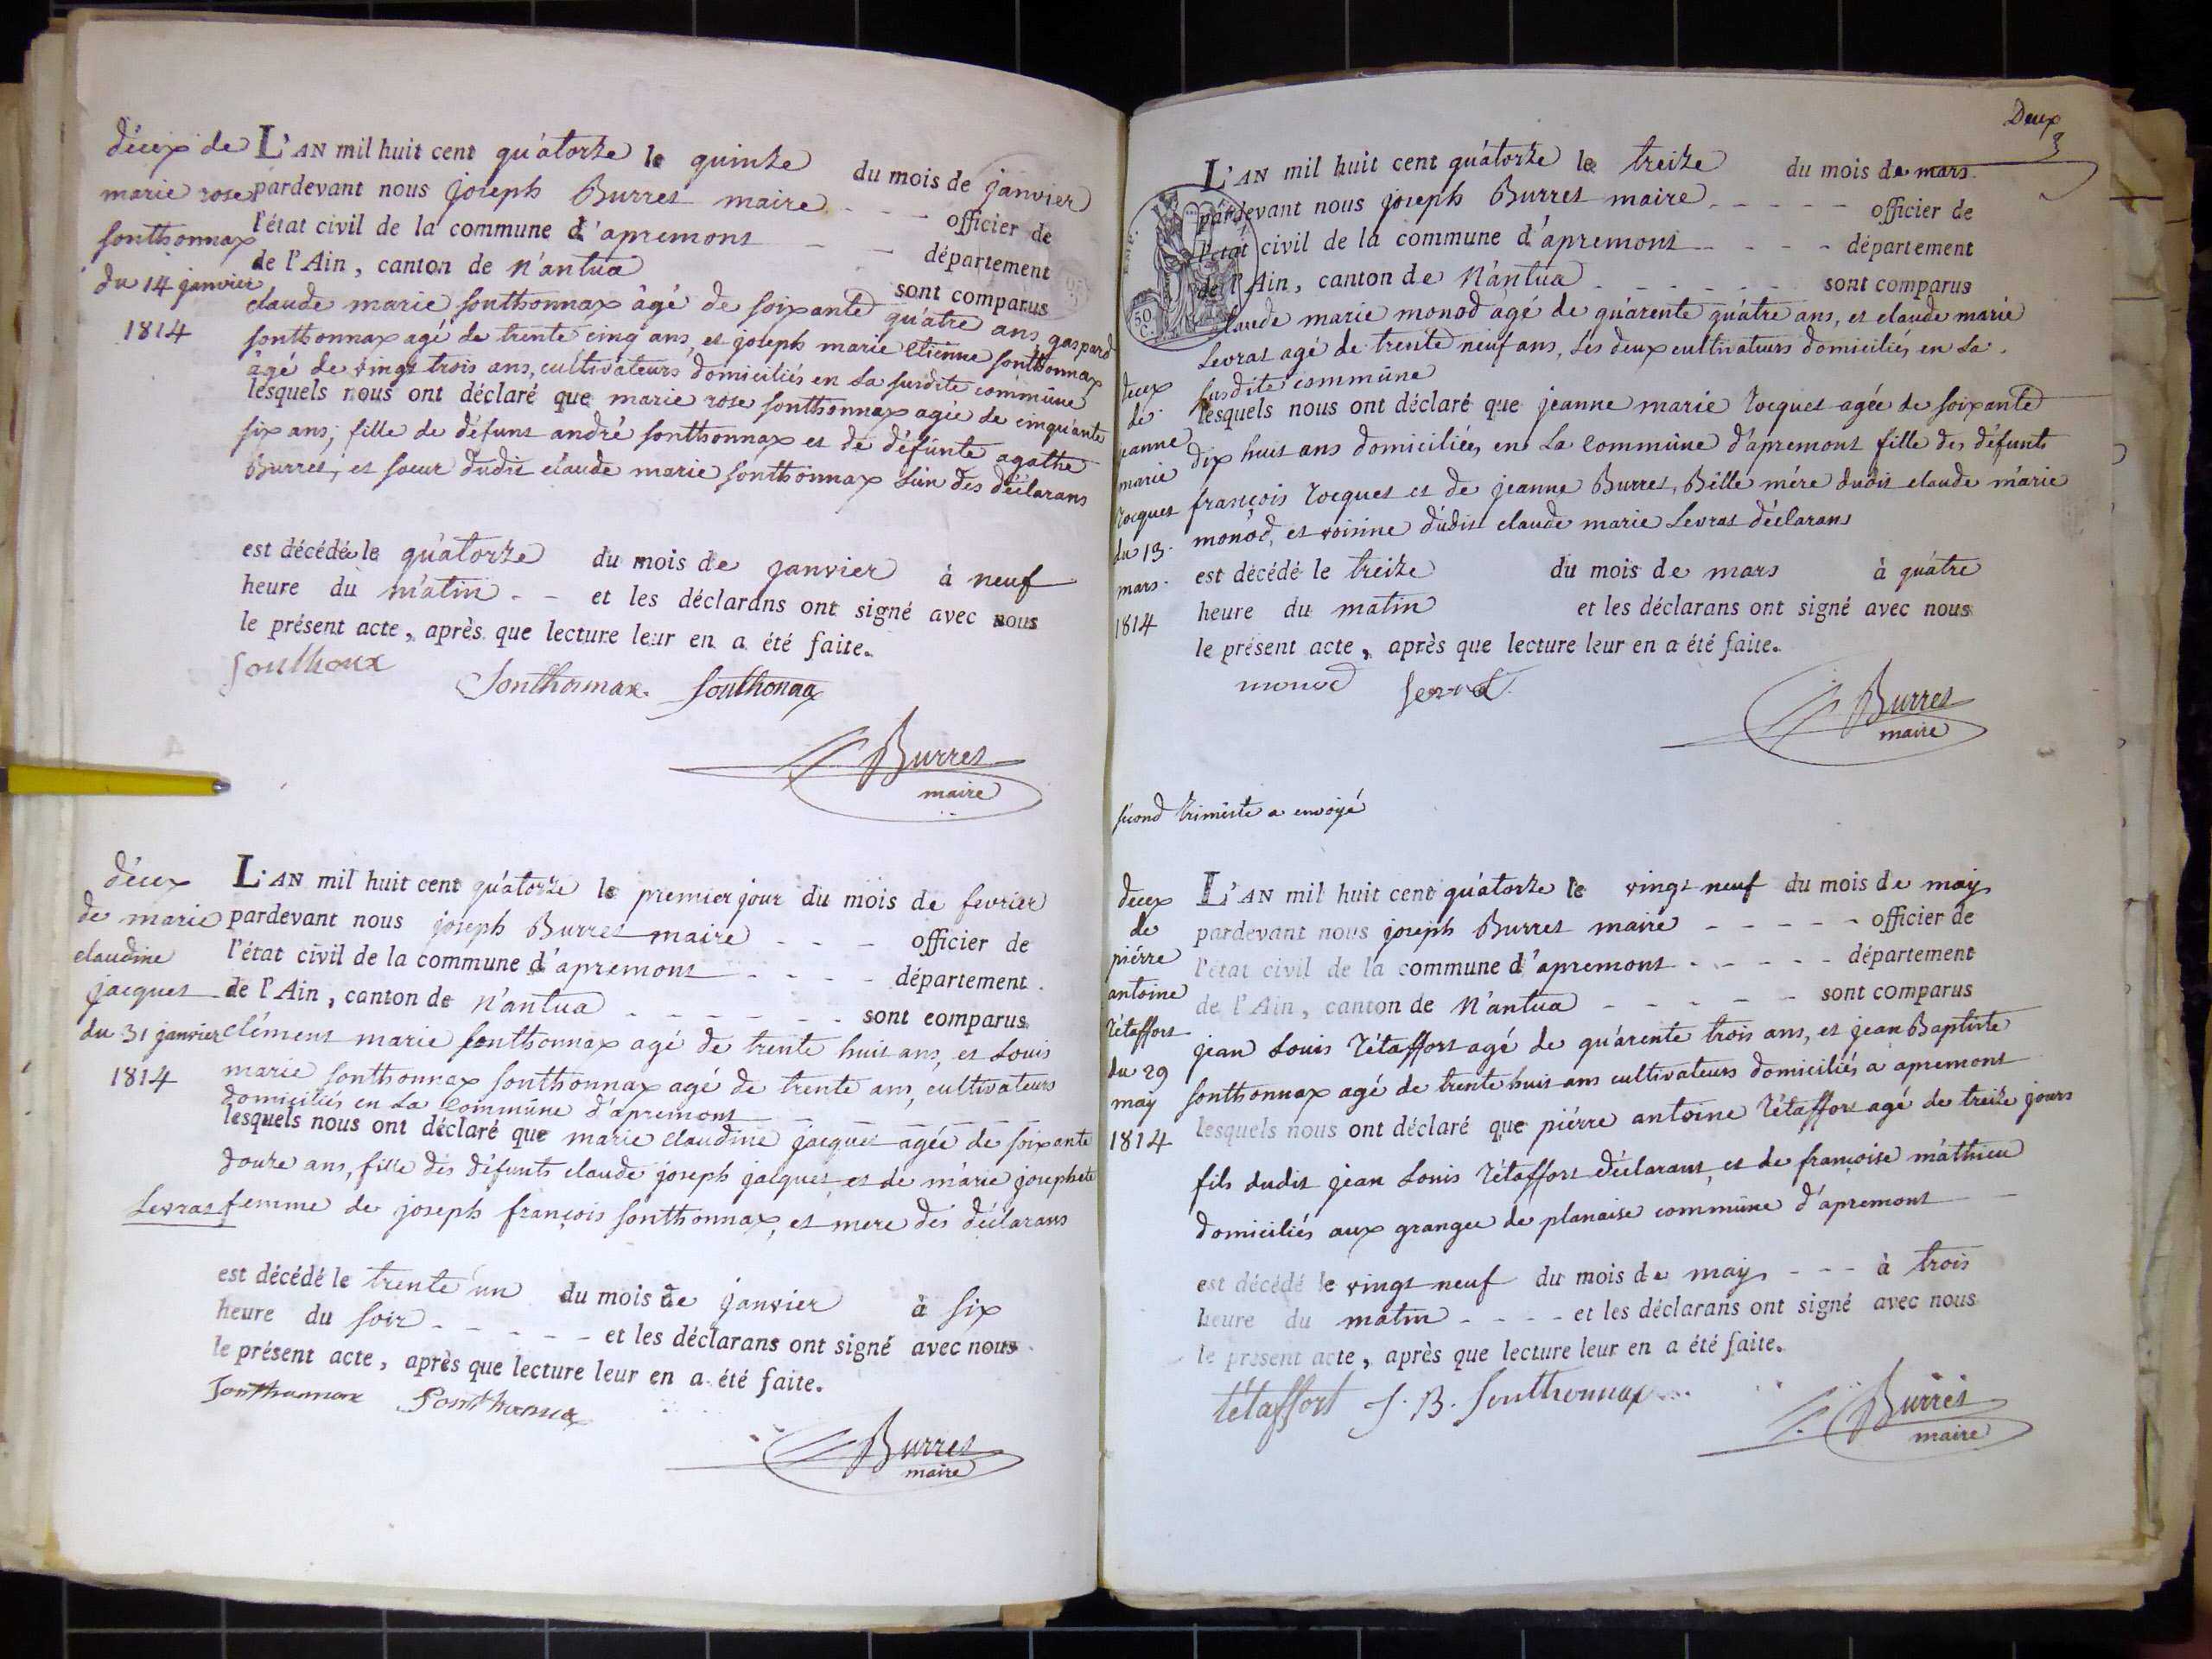 décex de
marie rose
sonthonnax
du 14 janvier
1814
L'AN mil huit cent quatorze le quinze du mois de janvier
pardevant nous joseph Burret maire officier de
l'état civil de la commune d'apremont département
de l'Ain, canton de Nantua sont comparus
claude marie sonthonnax âgé de soixante quatre ans, gaspard
sonthonnax agé de trente cinq ans, et joseph marie Etienne sonthonnax
âgé de vingt trois ans, cultivateurs domiciliés en la susdite commune
lesquels nous ont déclaré que marie rose sonthonnax agée de cinquante
six ans, fille de défunt andré sonthonnax et de défunte agathe
Burret, et soeur dudit claude marie sonthonnax l'un des déclarans
est décédée le quatorze du mois de janvier à neuf
heure du matin et les déclarans ont signé avec nous
le présent acte, après que lecture leur en a été faite.
Southonx Sonthonnax. Southonax
Burret
maire
décex
de marie
claudine
jacquet
du 31 janvier
1814
L'AN mil huit cent quatorze le premier jour du mois de fevrier
pardevant nous joseph Burret maire officier de
l'état civil de la commune d'apremont département
de l'Ain, canton de Nantua sont comparus
clément marie sonthonnax agé de trente huit ans, et Louis
marie sonthonnax sonthonnax agé de trente ans, cultivateurs
domiciliés en la Commune d'apremont
lesquels nous ont déclaré que marie claudine jacquet agée de soixante
douze ans, fille des défunts claude joseph jacquet, et de marie josephete
Levrat femme de joseph françois sonthonnax, et mere des déclarans
est décédé le trente un du mois de janvier à six
heure du soir et les déclarans ont signé avec nous
le présent acte, après que lecture leur en a été faite.
Sonthonnax Sonthonnax
Burret
maire
Deux
3
L'AN mil huit cent quatorze le treize du mois de mars
pardevant nous joseph Burret maire officier de
l'état civil de la commune d'apremont département
de l'Ain, canton de Nantua sont comparus
claude marie monod agé de quarente quatre ans, et claude marie
Levrat agé de trente neuf ans, les deux cultivateurs domiciliés en la
susdite commune
décex
de
jeanne
marie
Tocquet
du 13
mars
1814
lesquels nous ont déclaré que jeanne marie Tocquet agée de soixante
dix huit ans domiciliée, en la Commune d'apremont fille des défunts
françois Tocquet et de jeanne Burret, Bille mére dudit claude marie
monod, et voisine dudit claude marie Levrat déclarans
est décédé le treize du mois de mars à quatre
heure du matin et les déclarans ont signé avec nous
le présent acte, après que lecture leur en a été faite.
monod levrat
Burret
maire
second trimestre a envoyé
décex
de
piérre
antoine
Tétaffort
du 29
may
1814
L'AN mil huit cent quatorze le vingt neuf du mois de may
pardevant nous joseph Burret maire officier de
l'état civil de la commune d'apremont département
de l'Ain, canton de Nantua sont comparus
jean Louis Tétaffort agé de quarente trois ans, et jean Baptiste
sonthonnax agé de trente huit ans cultivateurs domiciliés a apremont
lesquels nous ont déclaré que piérre antoine Tétaffort agé de treize jours
fils dudit jean Louis Tétaffort déclarant, et de françoise mathieu
domiciliés aux granges de planaise commune d'apremont
est décédé le vingt neuf du mois de may à trois
heure du matin et les déclarans ont signé avec nous
le présent acte, après que lecture leur en a été faite.
tétaffort J. B. Sonthonnax
Burret
maire